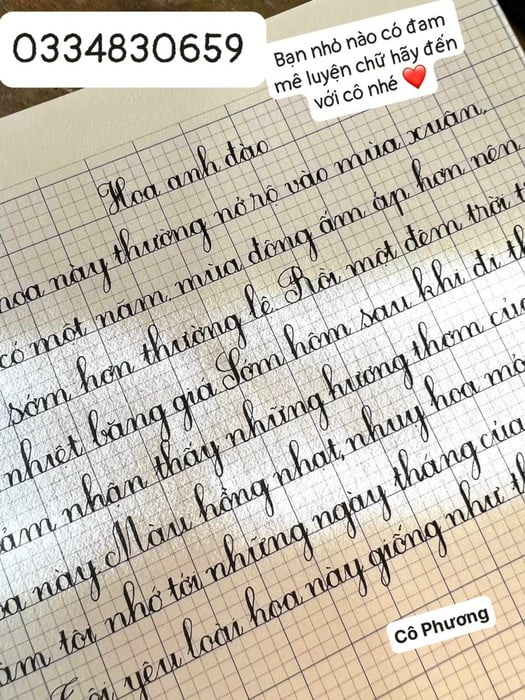 0334830659
Bạn nhỏ nào có đam
mê luyện chữ hãy đến
với cô nhé ❤️
Hoa anh đào
hoa này thường nở rộ vào mùa xuân,
có một năm, mùa đông ấm áp hơn nên
sớm hơn thường lệ. Rồi một đêm trời t
nhiệt băng giá. Sớm hôm sau khi đi th
cảm nhận thấy những hương thơm của
oa này. Màu hồng nhạt, nhuỵ hoa mỏ
ăm tôi nhớ tới những ngày tháng của
Tôi yêu loài hoa này giống như th
Cô Phương